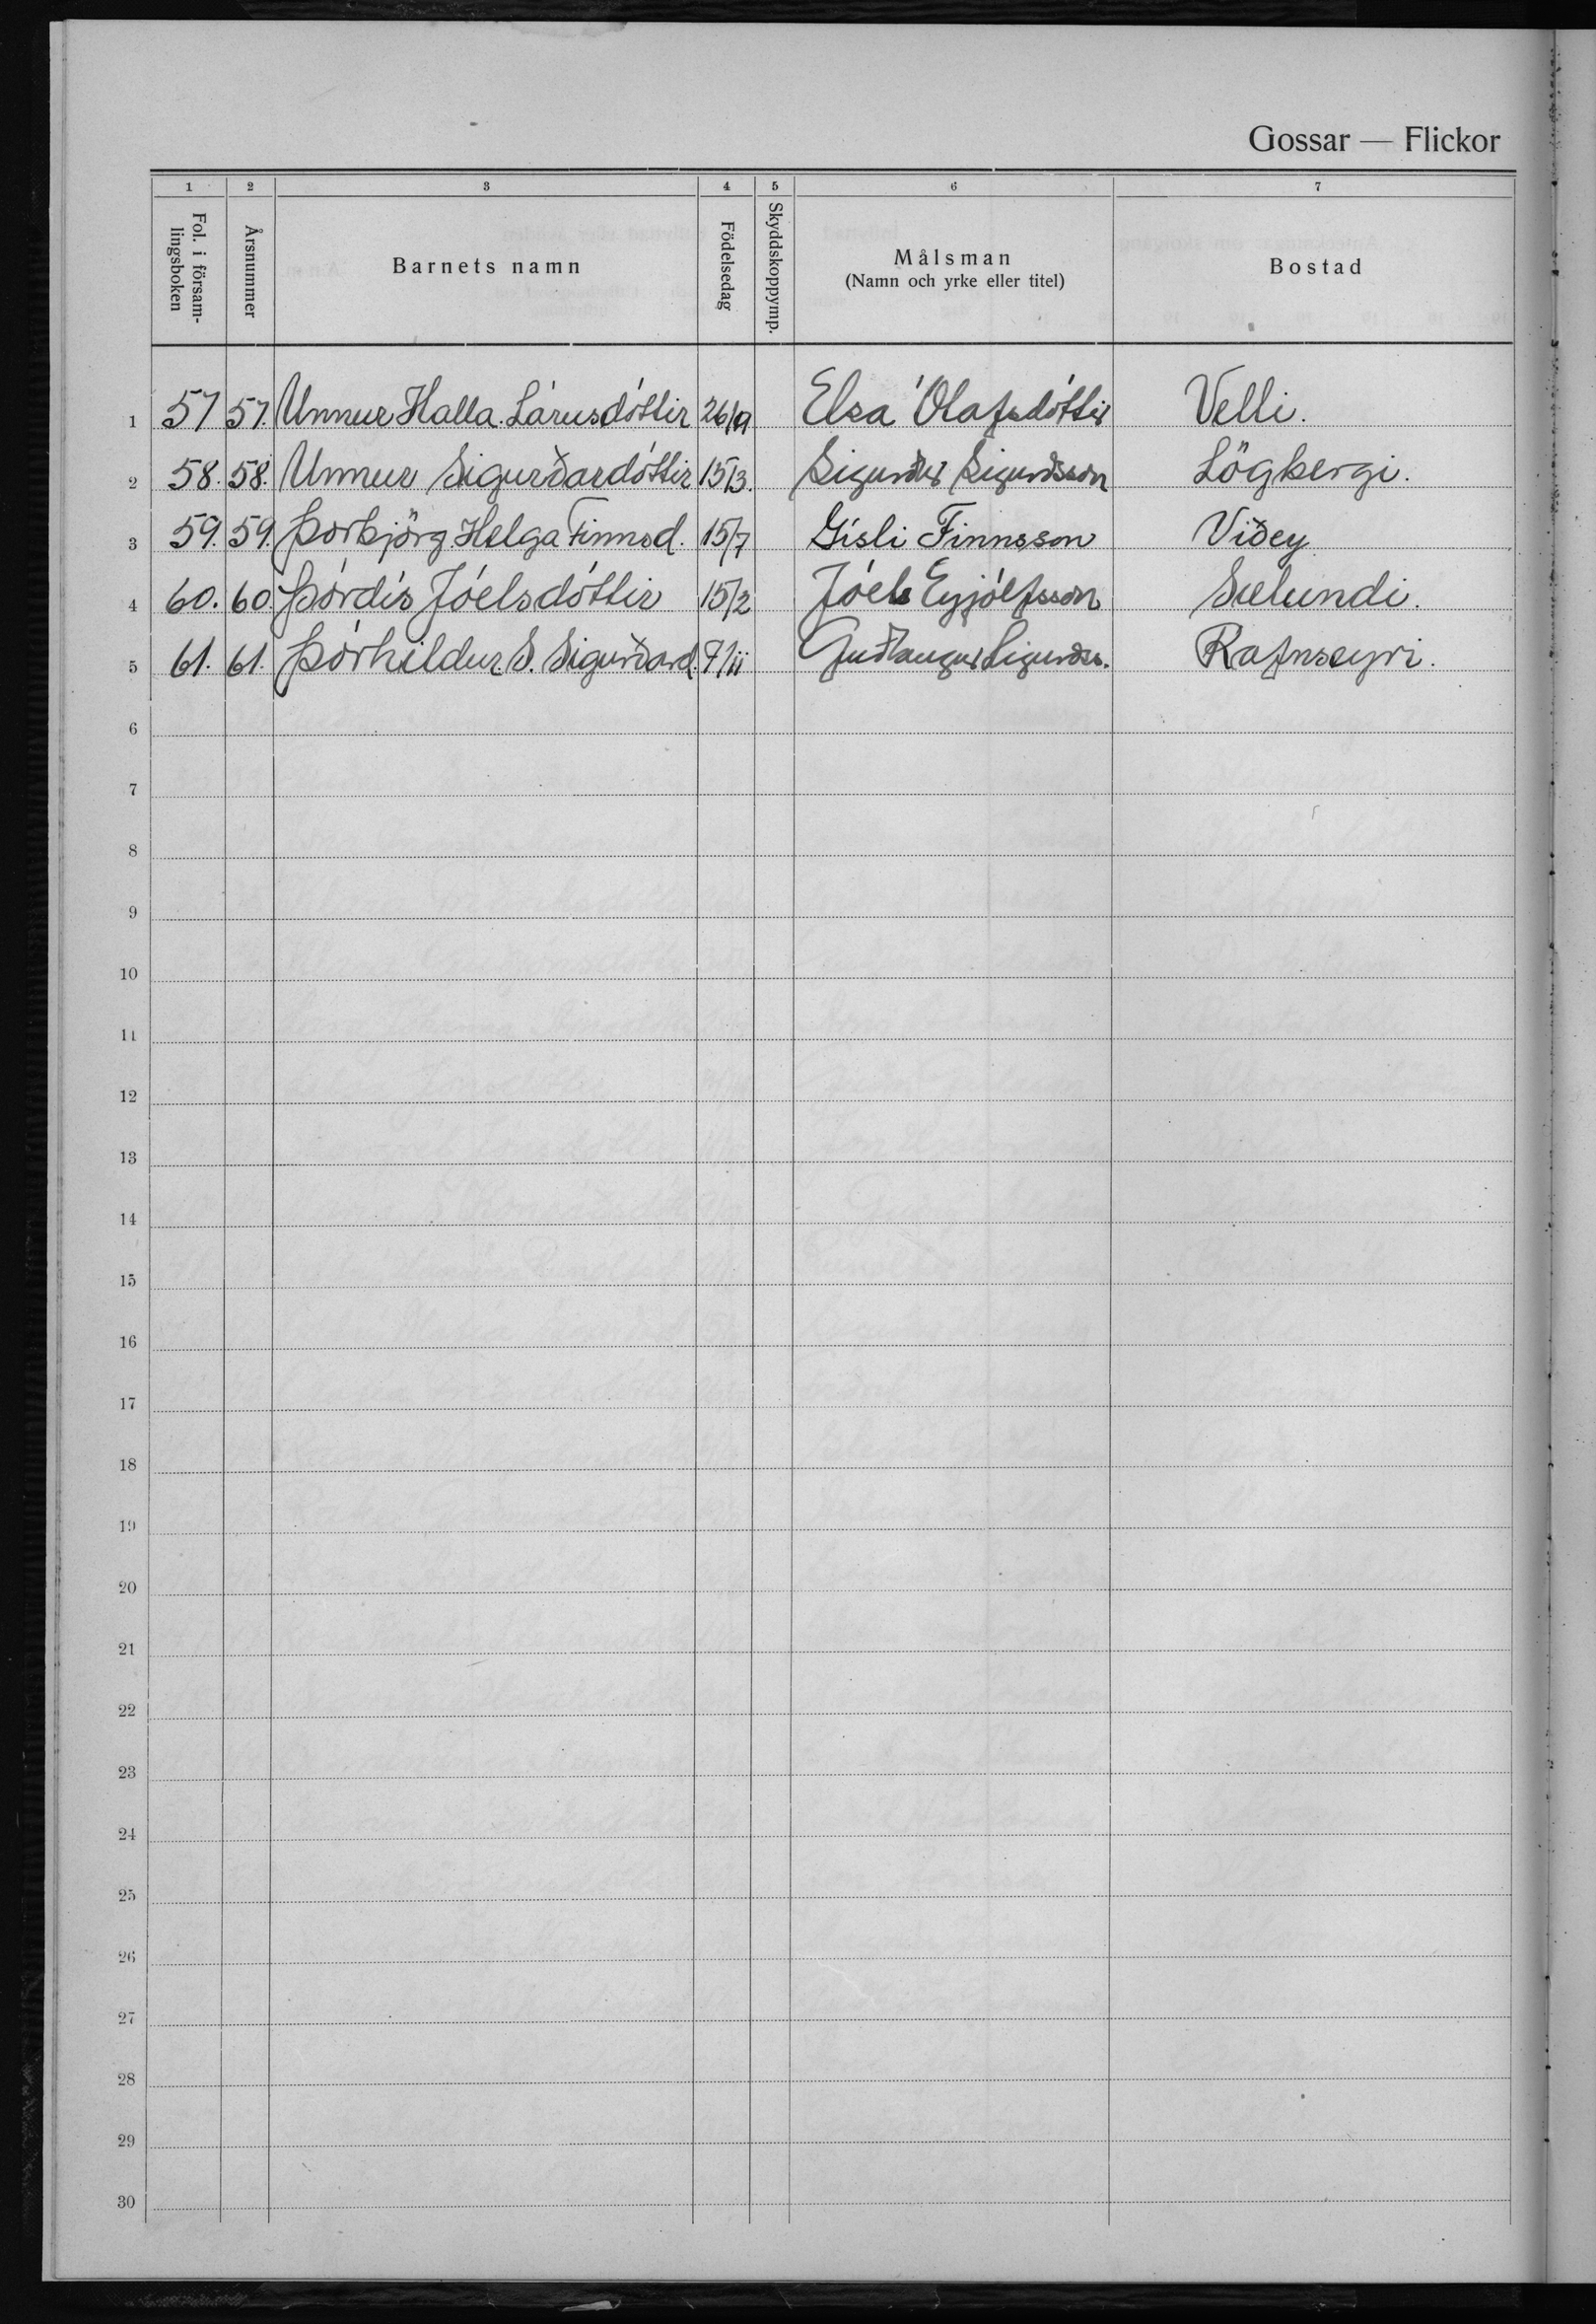 Gossar — Flickor
1 2 3 4 5 6 7
Fol. i försam-
lingsboken
Årsnummer
Barnets namn
Födelsedag
Skyddskoppymp.
Målsman
(Namn och yrke eller titel)
Bostad
1 57 57. Unnur Halla Lárusdóttir 26/9 Elsa Ólafsdóttir Velli.
2 58. 58. Unnur Sigurðardóttir 15/3. Sigurður Sigurðsson Lögbergi.
3 59. 59. Þorbjörg Helga Finnsd. 15/7 Gísli Finnsson Viðey
4 60. 60. Þórdís Jóelsdóttir 15/2 Jóel Eyjólfsson Sælundi.
5 61. 61. Þórhildur S. Sigurðard. 7/11 Guðlaugur Sigurðss. Rafnseyri.
6
7
8
9
10
11
12
13
14
15
16
17
18
19
20
21
22
23
24
25
26
27
28
29
30